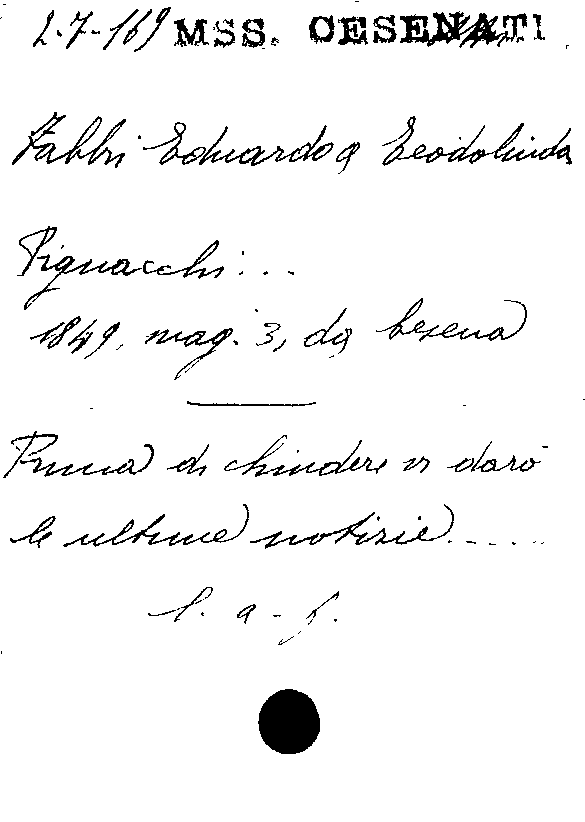 2-7-169 MSS. CESENATI
Fabbri Eduardo a Teodolinda
Pignacchi...
1849, mag. 3, da Cesena
Prima di chiudere vi darò
le ultime notizie.....
l. a. f.